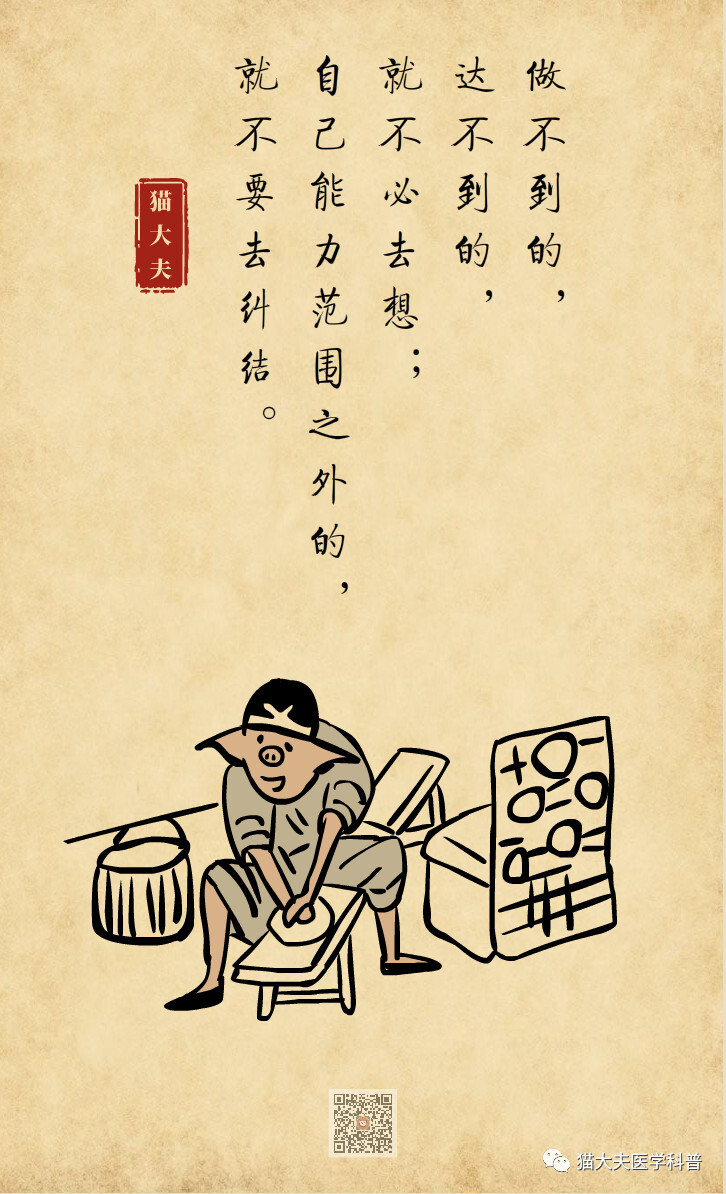 做不到的，
达不到的，
就不必去想；
自己能力范围之外的，
就不要去纠结。
猫大夫
猫大夫医学科普